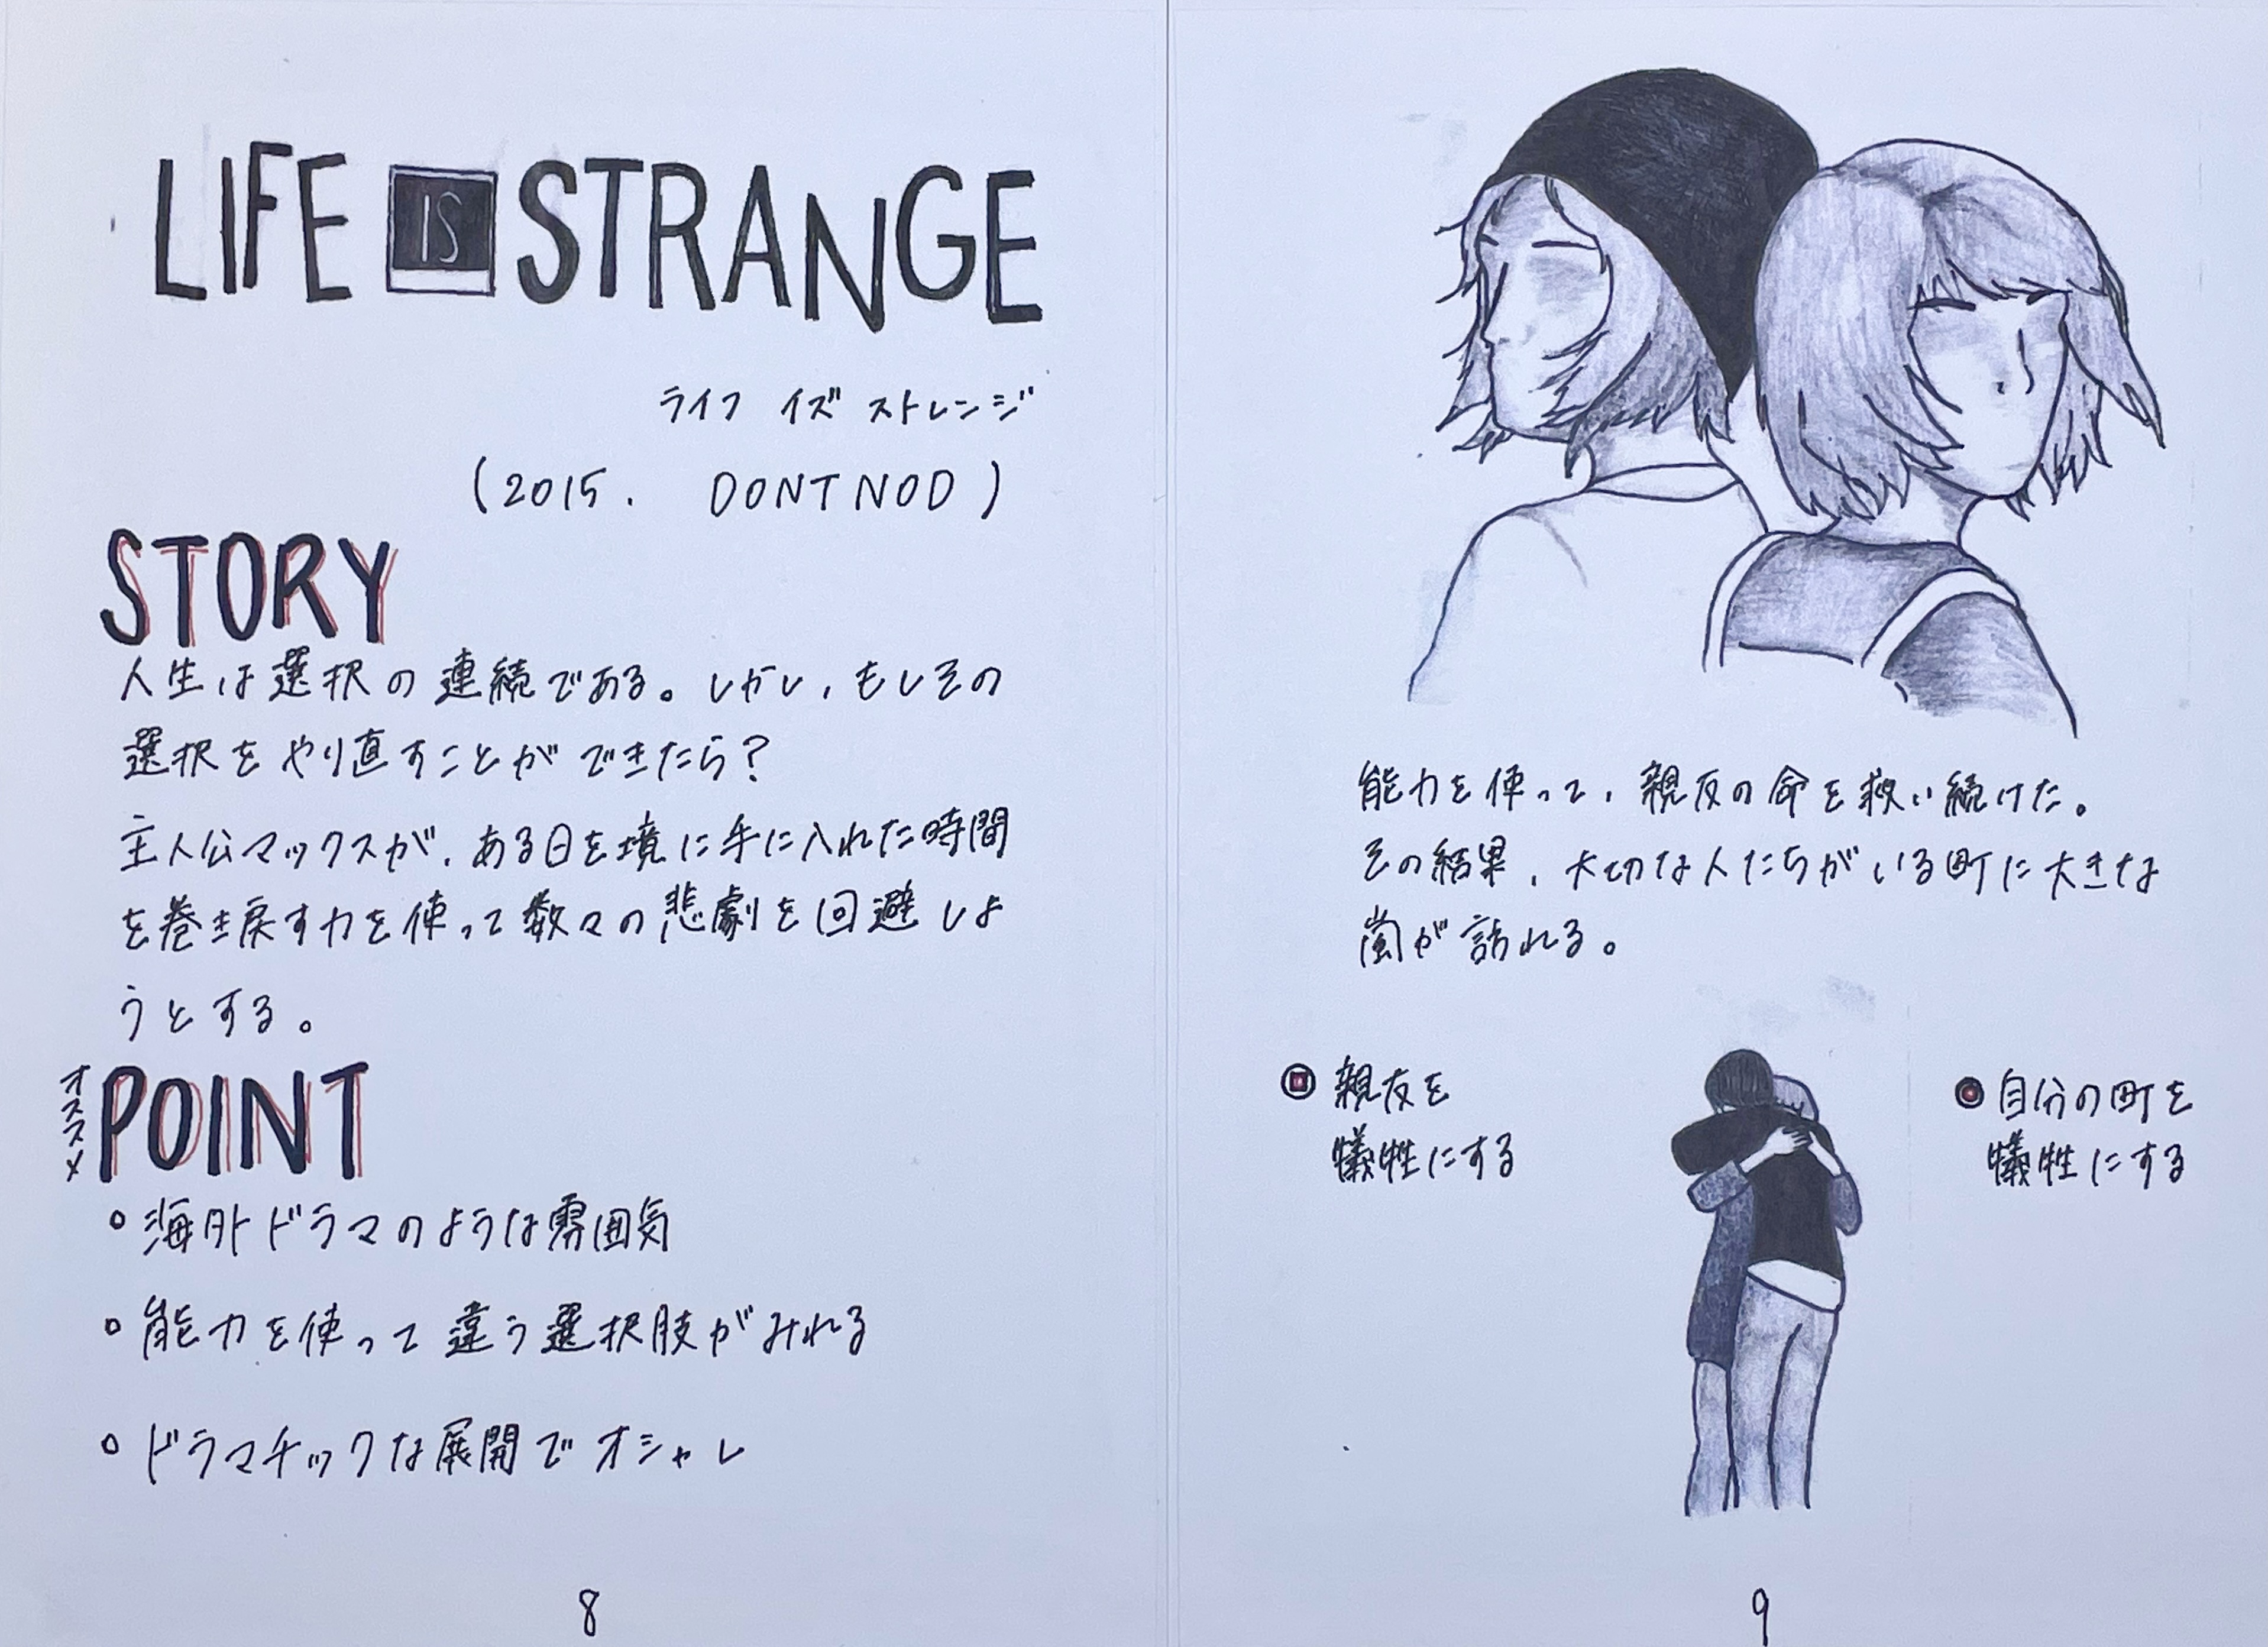 LIFE IS STRANGE
ライフ イズ ストレンジ
(2015. DONTNOD)
STORY
人生は選択の連続である。しかし,もしその
選択をやり直すことができたら?
主人公マックスが,ある日を境に手に入れた時間
を巻き戻す力を使って数々の悲劇を回避しよ
うとする。
オススメ
POINT
○海外ドラマのような雰囲気
○能力を使って違う選択肢がみれる
○ドラマチックな展開でオシャレ
8
能力を使って,親友の命を救い続けた。
その結果,大切な人たちがいる町に大きな
嵐が訪れる。
親友を
犠牲にする
自分の町を
犠牲にする
9